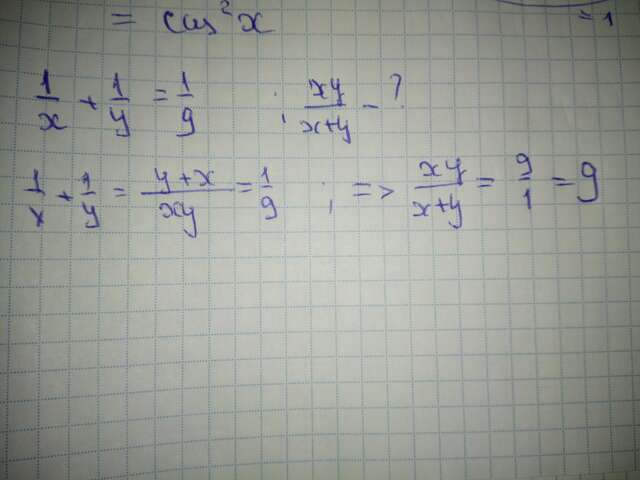 = cos²x
= 1
1/x + 1/y = 1/9 , xy/(x+y) - ?
1/x + 1/y = (y+x)/(xy) = 1/9 , => xy/(x+y) = 9/1 = 9